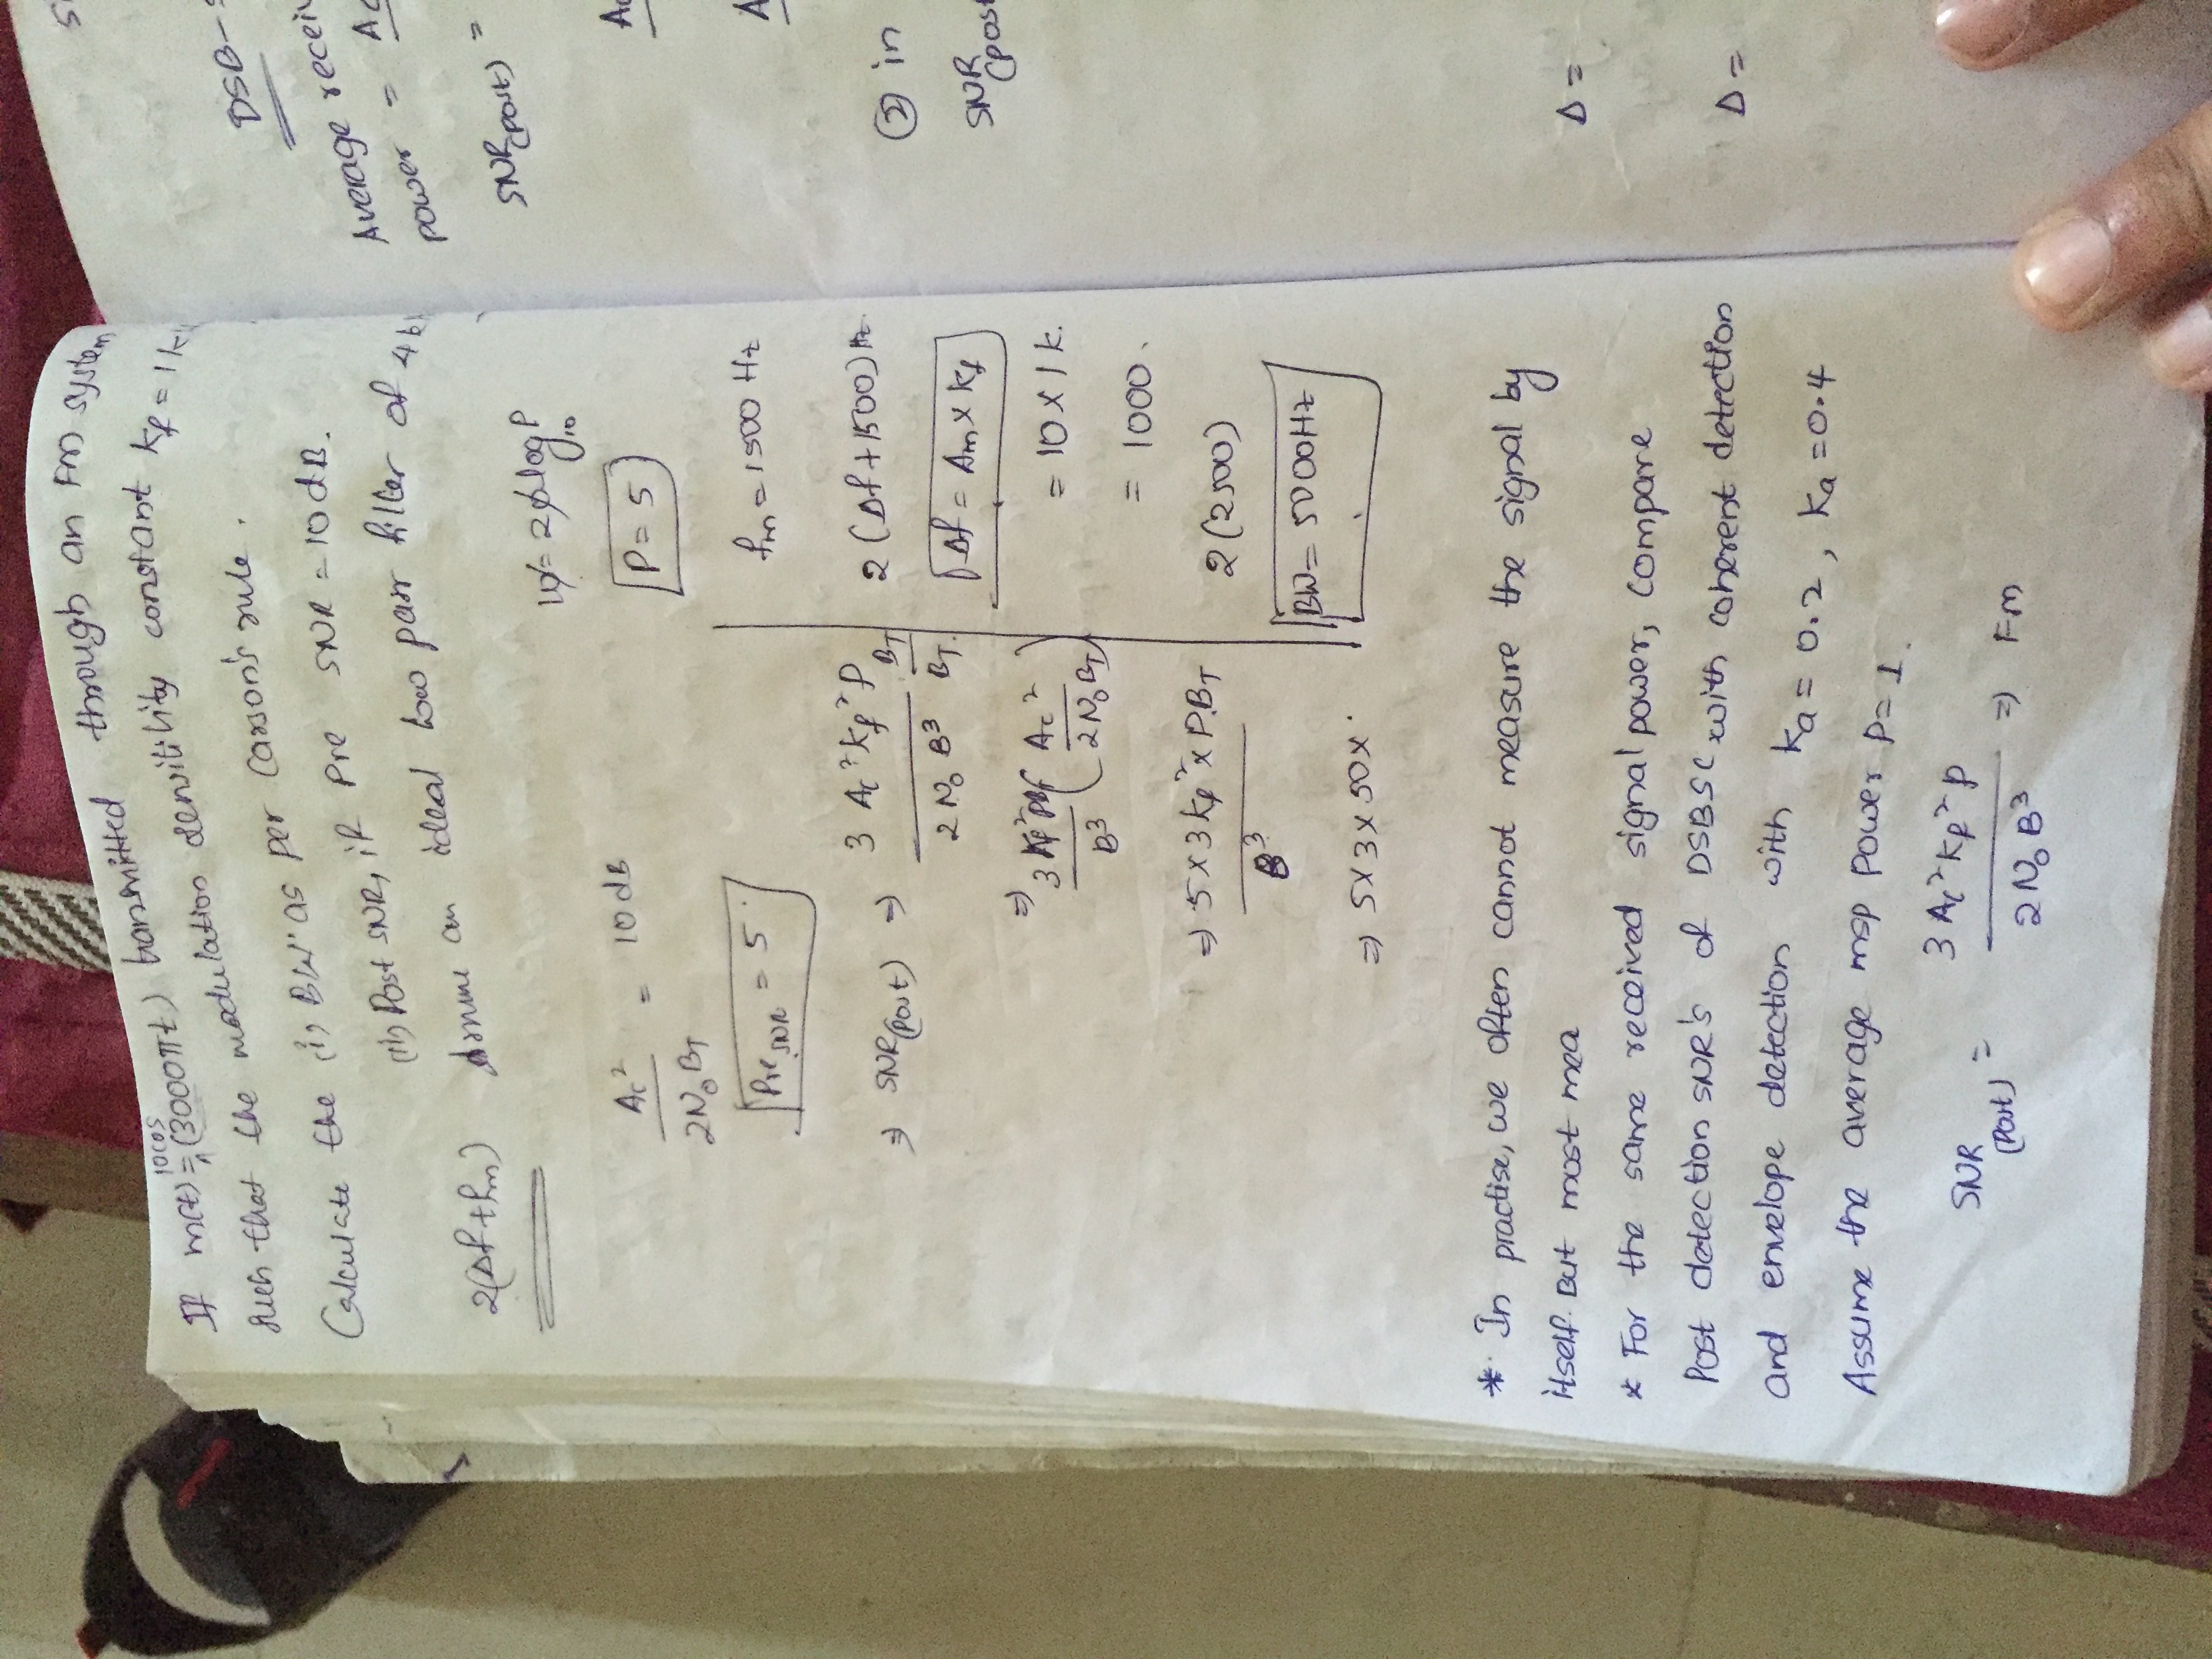 If m(t) = 10cos (3000πt) transmitted through an FM system
such that the modulation sensitility constant kf = 1k
Calculate the (i) BW as per Carson's rule.
(ii) Post SNR, if Pre SNR = 10 dB.
2(Δf + fm) Assume an ideal low pass filter of 4
10 = 20 log10 P
P = 5
Ac² / 2N₀BT = 10 dB
Pre SNR = 5
fm = 1500 Hz
⇒ SNR(post) ⇒ 3 Ac² kf² P / 2 N₀ B³ · BT / BT
2 (Δf + 1500) Hz
Δf = Am x kf
⇒ 3 kf² P BT / B³ (Ac² / 2N₀BT)
= 10 x 1 k.
= 1000.
⇒ 5 x 3 kf² x P.BT / B³
2 (2500)
BW = 5000Hz
⇒ 5 x 3 x 50 x
* In practise, we often cannot measure the signal by
itself. But most mea
* For the same received signal power, compare
Post detection SNR's of DSBSC with coherent detection
and envelope detection with ka = 0.2, ka = 0.4
Assume the average msp power P = 1.
SNR(post) = 3 Ac² kf² P / 2 N₀ B³ ⇒ FM
DSB-
Average
power = 
SNR(post) =
② in
SNR(post
Δ =
Δ =